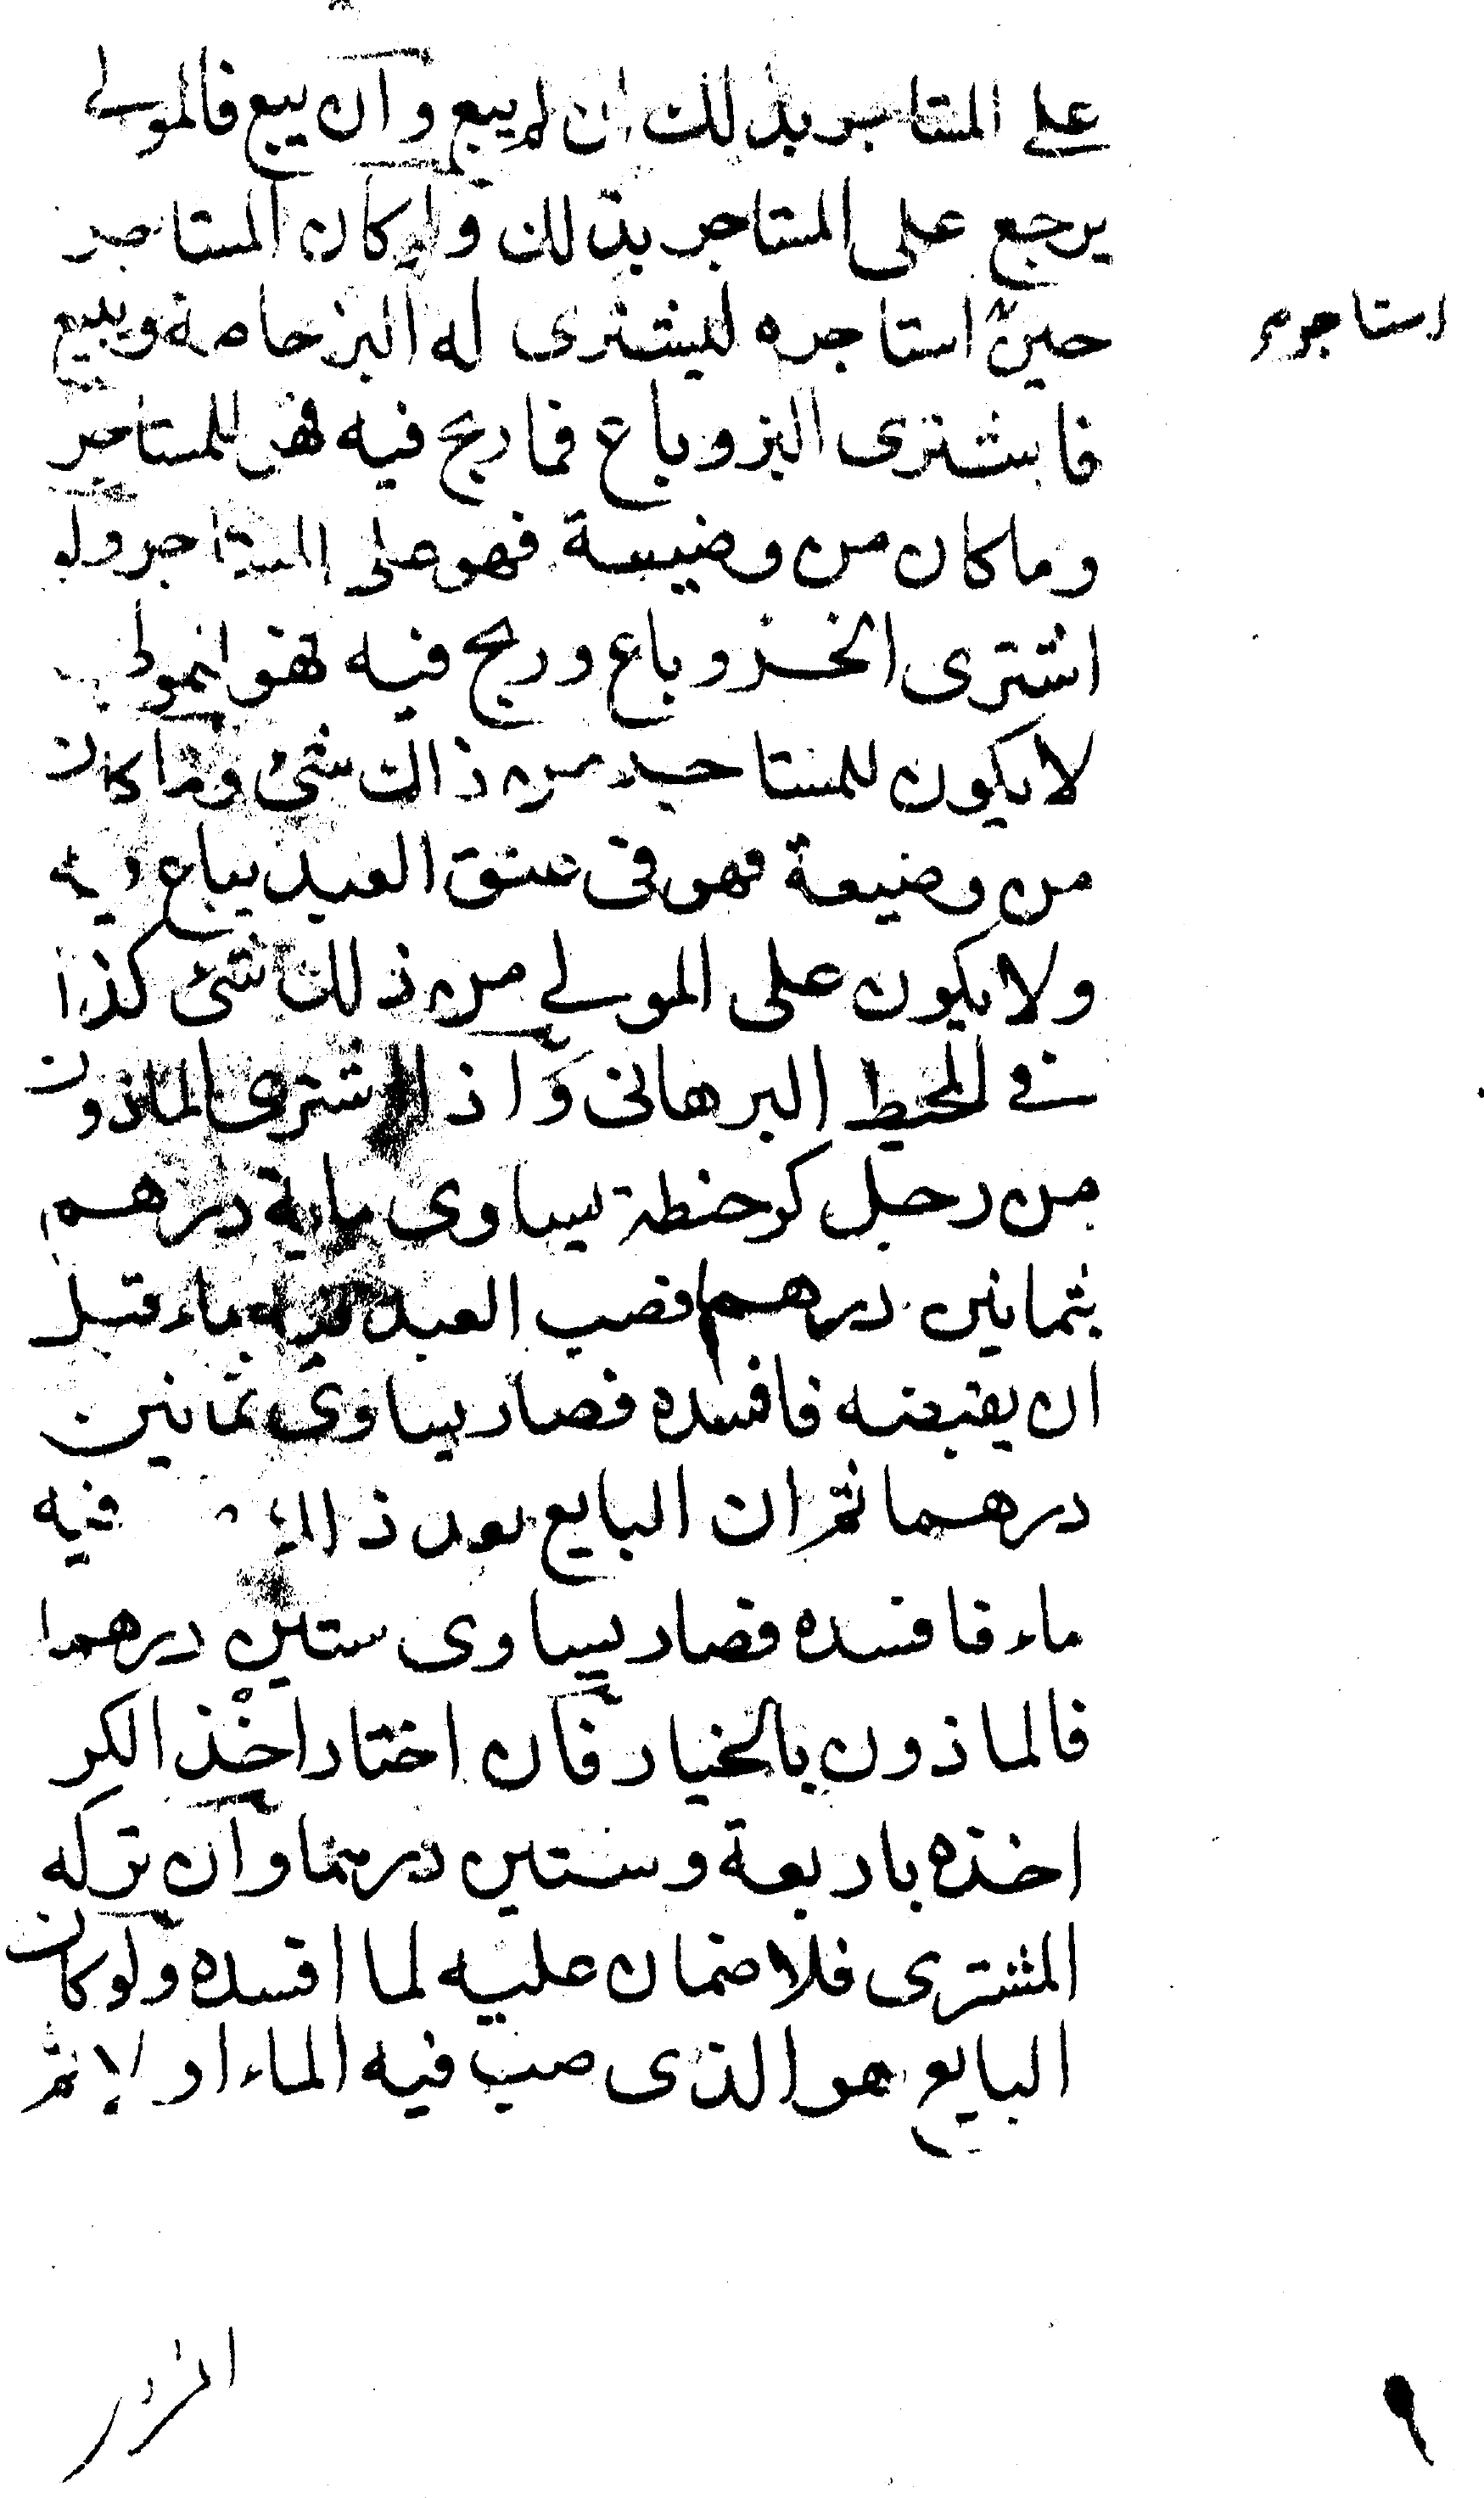 على المستاجر بذلك ان لم يبع وان بيع فالمولى
يرجع على المستاجر بذلك ولو كان المستاجر
حين استاجره ليشترى له البز خاصة ويبيع
استاجره
فاشترى البز وباع فما ربح فيه فهو للمستاجر
وما كان من وضيعة فهو على المستاجر ولو
اشترى الخز وباع وربح فيه فهو للمولى
لا يكون للمستاجر من ذلك شئ وما كان
من وضيعة فهو فى عنق العبد يباع فيه
ولا يكون على المولى من ذلك شئ كذا
فى المحيط البرهانى واذا اشترى الماذون
من رجل كر حنطة يساوى ماية درهم
بثمانين درهما فصب العبد فيه ماء قبل
ان يقبضه فافسده فصار يساوى ثمانين
درهما ثم ان البايع بعد ذلك فيه
ماء فافسده فصار يساوى ستين درهما
فالماذون بالخيار فان اختار اخذ الكر
اخذه باربعة وستين درهما وان تركه
المشترى فلا ضمان عليه لما افسده ولو كان
البايع هو الذى صب فيه الماء اولا ثم